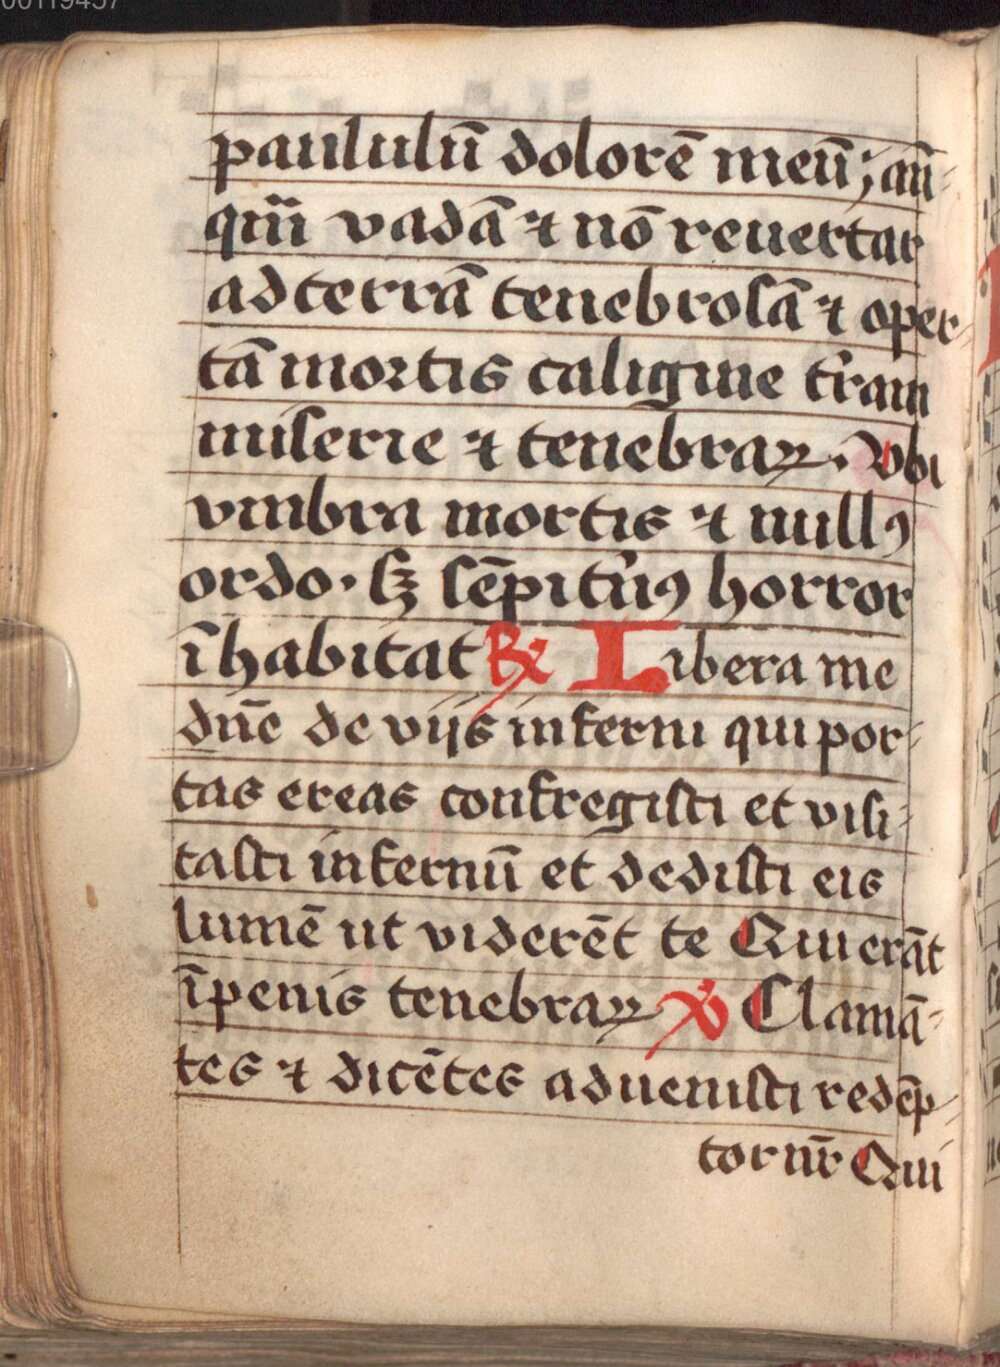 00119457
paululū dolorē meū; an-
qͫ vadā ⁊ nō reuertar
ad terrā tenebrosā ⁊ oper-
tā mortis caligine tr̄am
miserie ⁊ tenebraꝝ. Vbi
vmbra mortis ⁊ nullꝯ
ordo. sꝫ sēpit̄nꝯ horror
īhabitat ℞ Libera me
dn̄e de viis inferni qui por-
tas ereas confregisti et visi-
tasti infernū et dedisti eis
lumē ut viderēt te Qui erāt
īpenis tenebraꝝ ℣ Clamā-
tes ⁊ dicētes aduenisti redēp-
tor nr̄ Qui